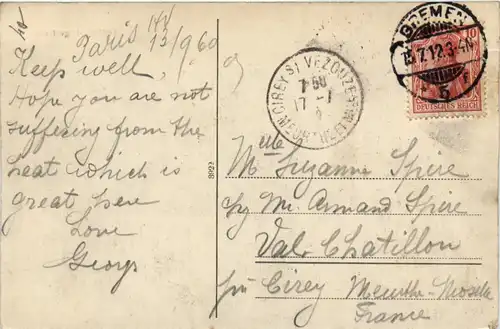 Paris 13/9/60
Keep well,
Hope you are not
suffering from the
heat which is
great here
Love
Georges
3922
BREMEN
7.12.3-4N
5 r
10
DEUTSCHES REICH
CIREY S/ VEZOUZE
MEURTHE-ET-M
7 50
17 -7
Mlle Suzanne Spire
by Mr. Armand Spire
Val-Chatillon
par Cirey Meurthe-Moselle
France